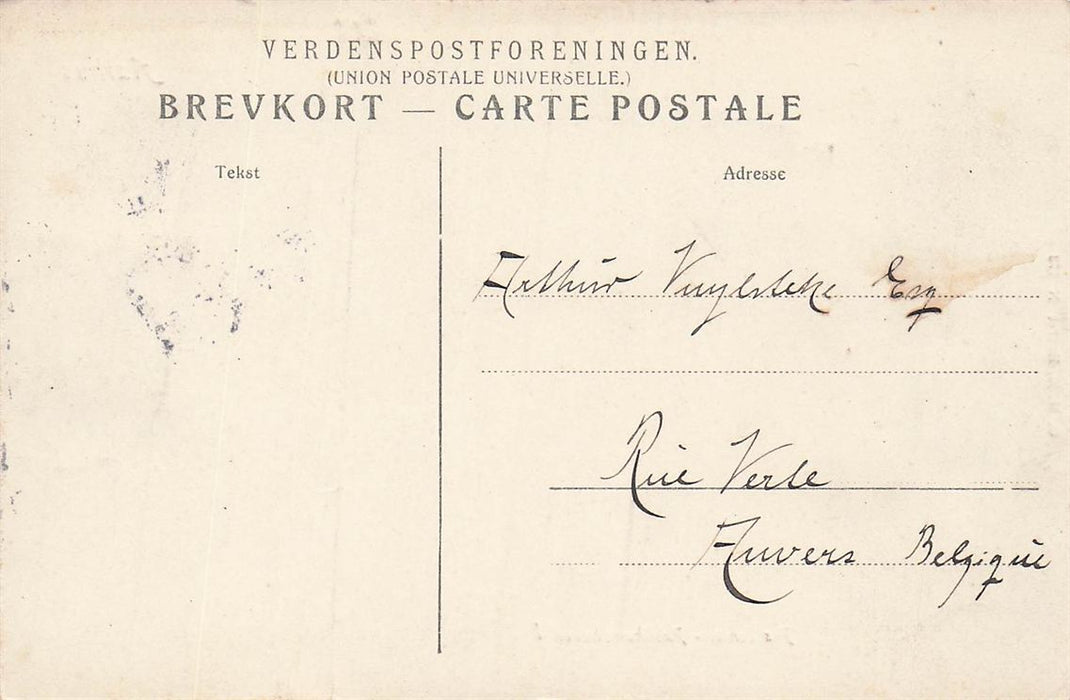 VERDENSPOSTFORENINGEN.
(UNION POSTALE UNIVERSELLE.)
BREVKORT — CARTE POSTALE
Tekst
Adresse
Arthur Vuylsteke Esq
Rue Verte
Anvers Belgique